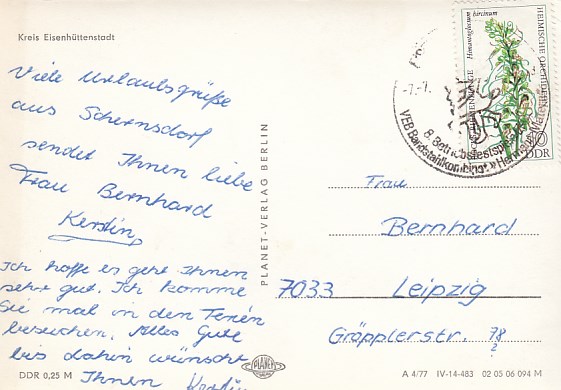 Kreis Eisenhüttenstadt
Viele Urlaubsgrüße
aus Schernsdorf
sendet Ihnen liebe
Frau Bernhard
Kerstin
Ich hoffe es geht Ihnen
sehr gut. Ich komme
Sie mal in den Ferien
besuchen. Alles Gute
bis dahin wünscht
Ihnen Kerstin
DDR 0,25 M
PLANET-VERLAG BERLIN
PLANET
HEIMISCHE ORCHIDEEN
Himantoglossum hircinum
10
DDR
8. Betriebsfestspiele
VEB Bandstahlkombinat "Hermann Matern"
Frau
Bernhard
7033 Leipzig
Gröpplerstr. 78
2
A 4/77 IV-14-483 02 05 06 094 M